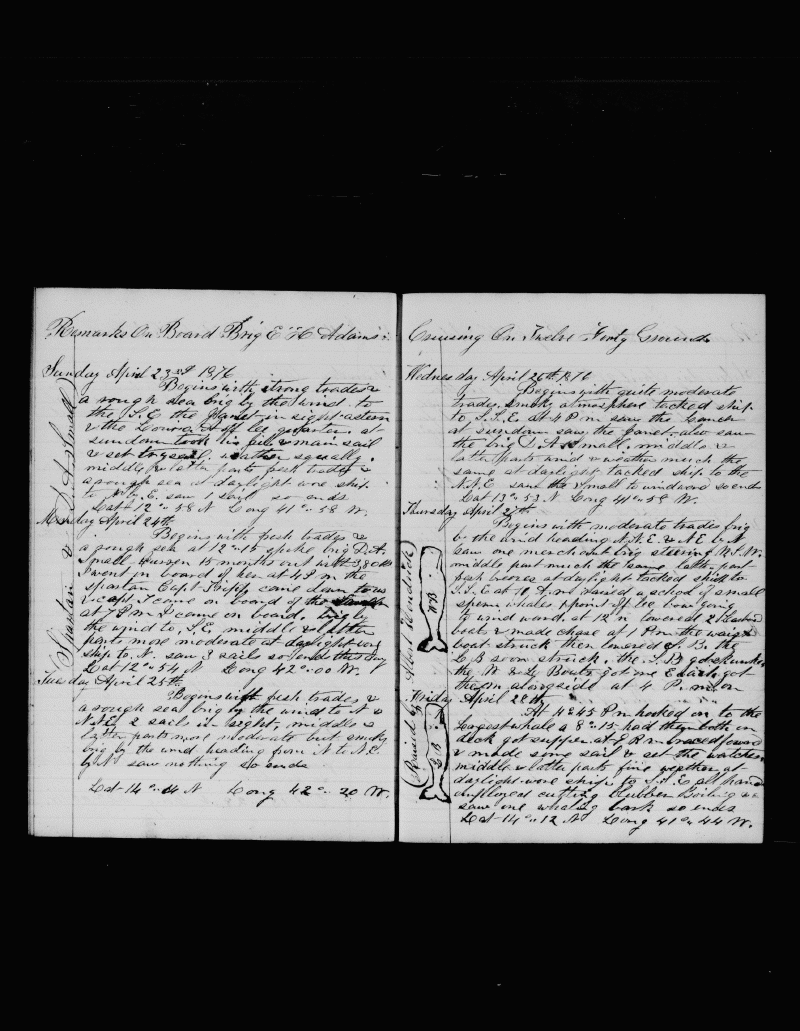 Remarks On Board Brig E H Adams
Sunday April 23rd 1876
Begins with strong trades &
a rough sea brig by the wind to
the S.E. the in sight astern
& the Louisa A off lee quarter. at
sundown took in & main sail
& set weather squally.
middle & latter parts fresh trades &
a rough sea at daylight wore ship
to N by E. saw 1 sail so ends
Lat 12°58 N Long 41°58 W.
Monday April 24th
Begins with fresh trades &
a rough sea at 12-15 spoke brig D.A.
Small 15 months out with
I went on board of her at 4 P m the
Spartan Capt came down to us
& capt & I came on board of
at 7 P m I came on board. brig by
the wind to S.E. middle & latter
parts more moderate at daylight wore
ship to N. saw 3 sails so ends this day
Lat 12°54 N Long 42°00 W.
Tuesday April 25th
Begins with fresh trades &
a rough sea brig by the wind to N &
N.N.E. 2 sails in sight. middle &
latter parts more moderate but smoky
brig by the wind heading from N to N.E.
by N saw nothing so ends
Lat 14°14 N Long 42°20 W.
Spartan & D. A. Small
Cruising On Twelve Forty Ground
Wednesday April 26th 1876
Begins with quite moderate
trades smoky atmosphere tacked ship
to S.S.E. at 4 P m saw the
at sundown saw the also saw
the brig D A Small. middle &
latter parts wind & weather much the
same at daylight tacked ship to the
N.N.E saw the Small to windward so ends
Lat 13°53 N Long 41°58 W.
Thursday April 27th
Begins with moderate trades brig
by the wind heading N.N.E. & N E by N
saw one merchant brig steering N.N.W.
middle part much the same latter part
fresh breezes at daylight tacked ship to
S.S.E at 10 A.m raised a school of small
sperm whales 1 point off lee bow going
to windward. at 12 n lowered 2 larboard
boats & made chase at 1 P m the waist
boat struck then lowered S. B. the
L B soon struck. the S. B got
the W & L Boats got one each got
them alongside at 4 P. m so on
Friday April 28th
At 4-45 P m hooked on to the
Largest whale a 8-15 had them both in
deck got supper at P m braced forward
& made some sail & set the watches
middle & latter parts fine weather at
daylight wore ship to S.S.E all hands
employed cutting Blubber Boiling &c
saw one whaling bark so ends
Lat 14°12 N Long 41°44 W.
Raised by Albert Hendrick
W B
L B